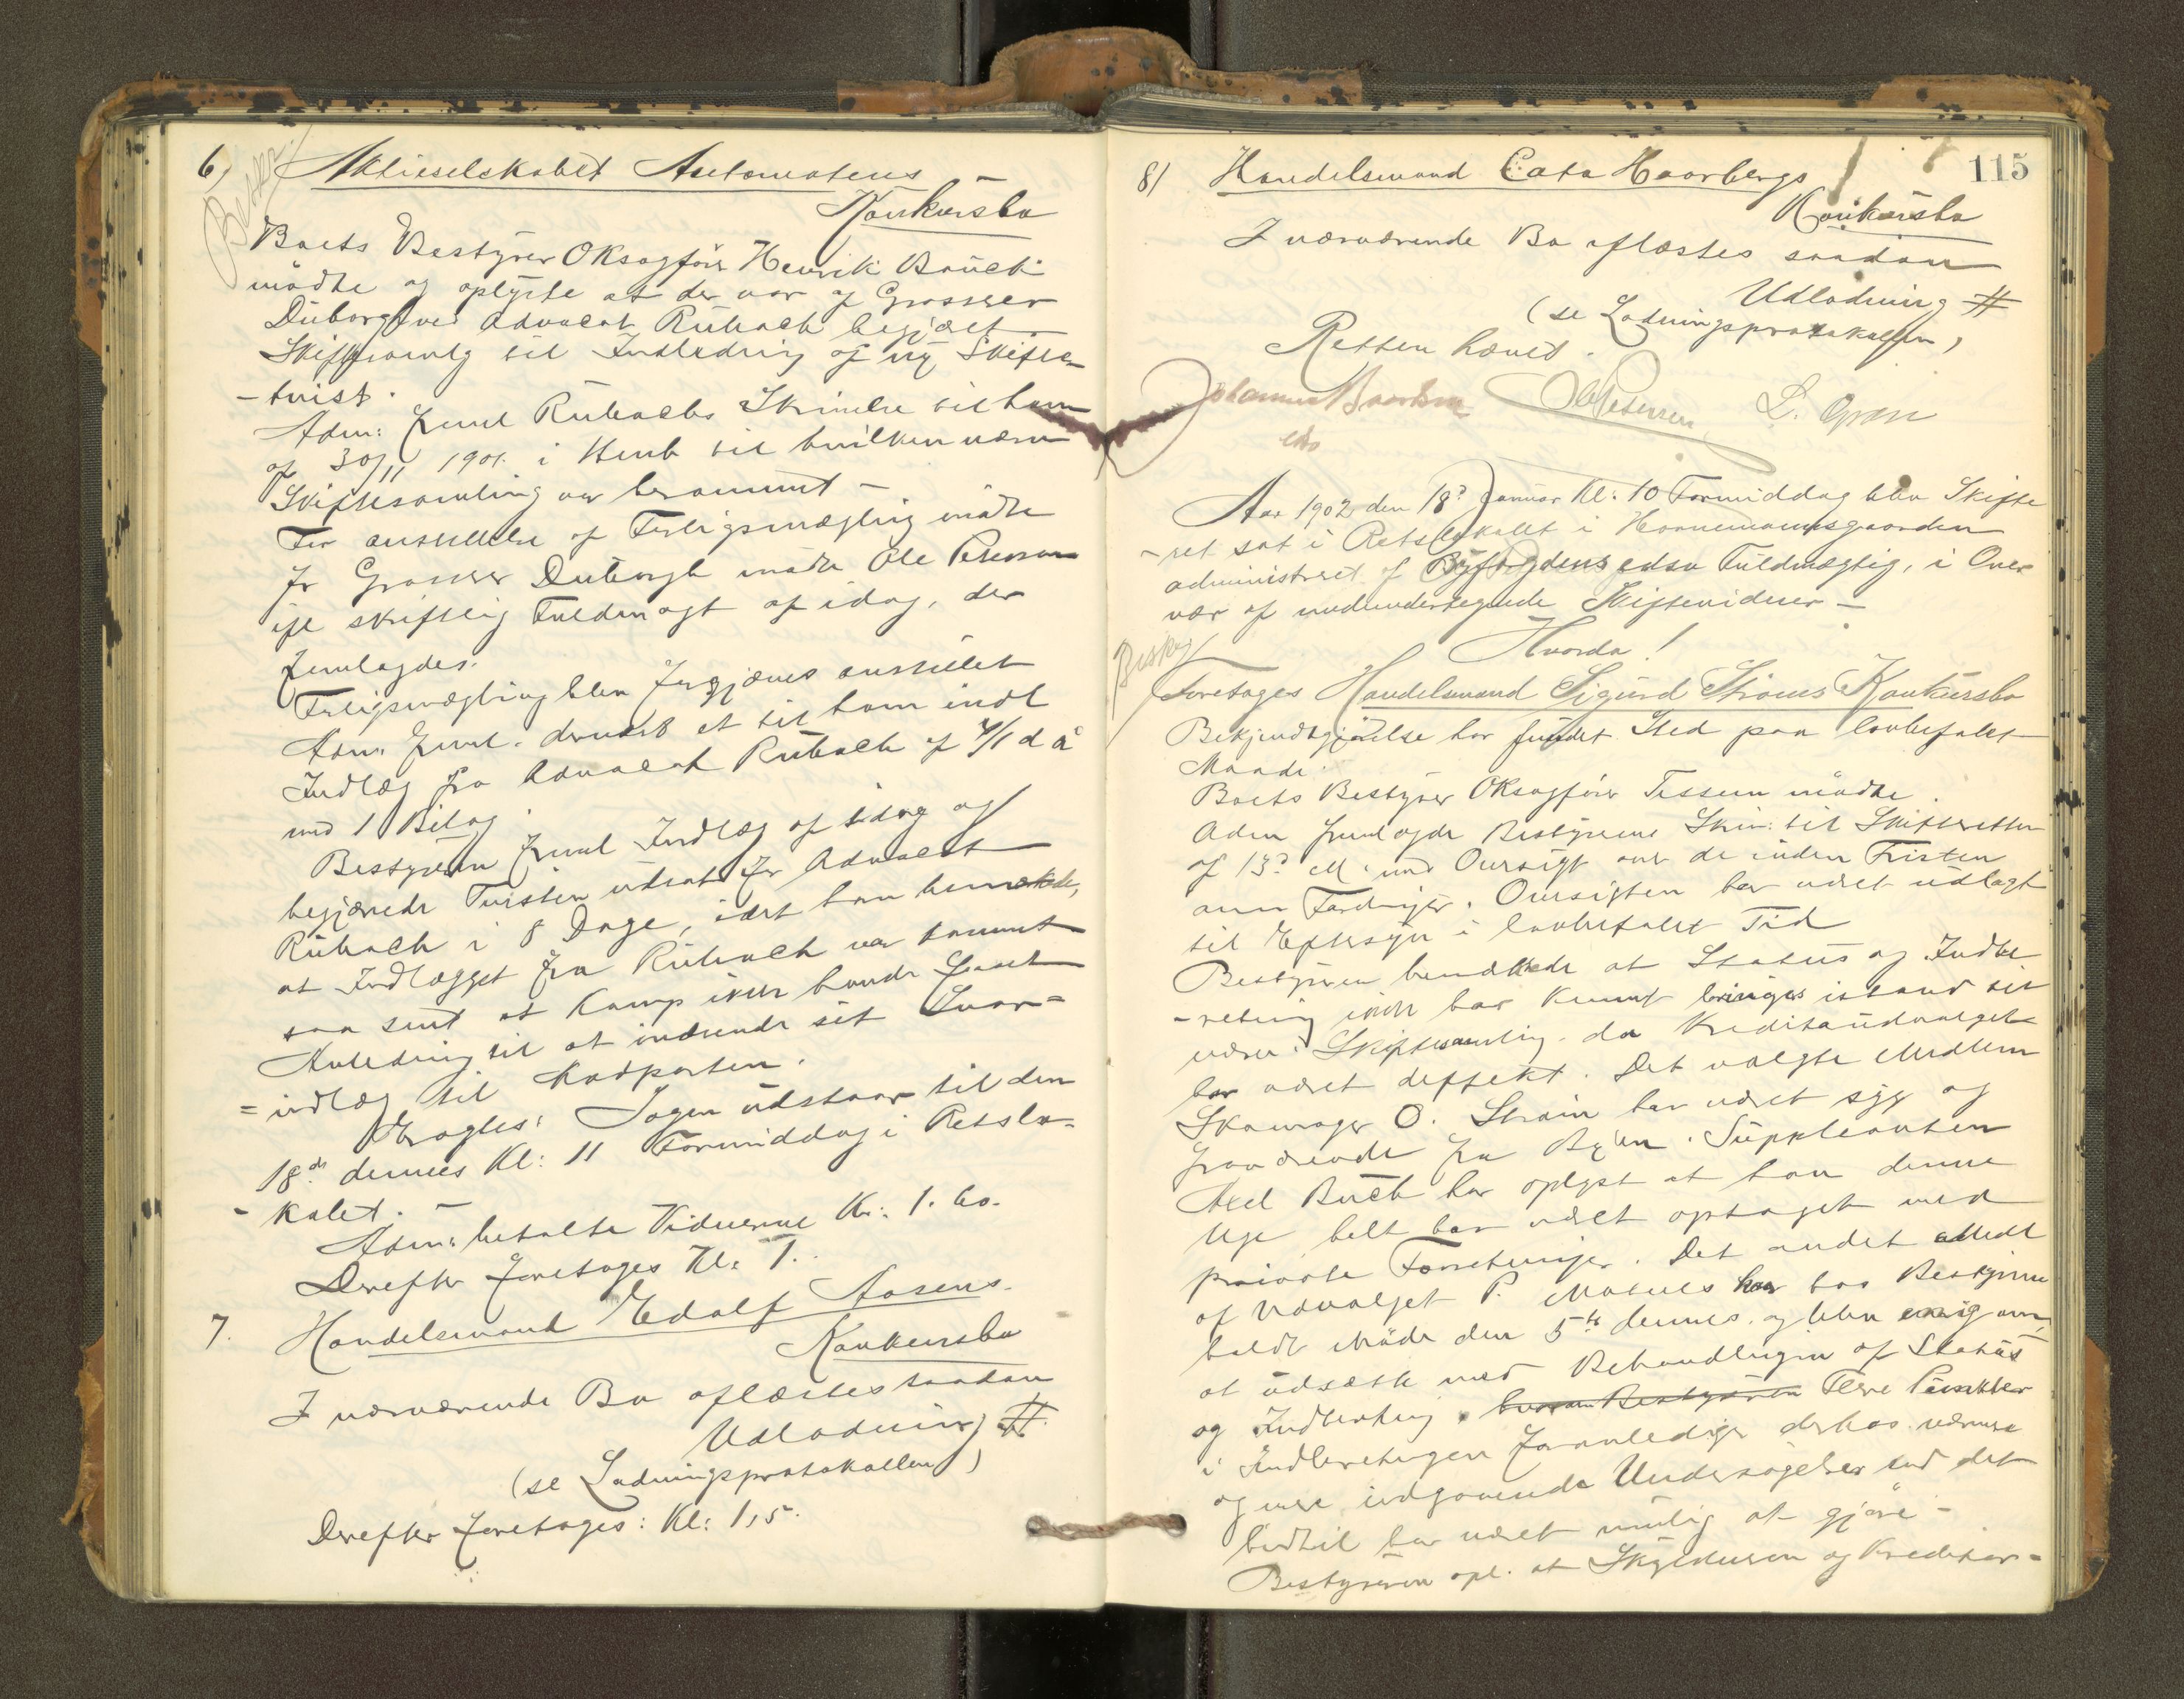 6) Aktieselskabet Automatens
Konkursbo
Boets Bestyrer OKsagfører Henrik Bauck
mødte og oplyste at der var af Grosserer
Duborgh ved Advocat Rubach begjæret
Skiftesamlg til Indledning af ny Skifte-
-tvist.
Adm: freml Rubachs Skrivelse til ham
af 30/11 1901. i Henh til hvilken nærv
Skiftesamling var berammet -
For anstillelse af Forligsmægling mødte
for Grosserer Duborgh mødte Ole Petersen
ifl skriftlig Fuldmagt af idag, der
fremlagdes.
Forligsmægling blev forgjæves anstillet
Adm: freml. dernæst et til ham indl
Indlæg fra Advocat Rubach af 4/1 d å
med 1 Bilag.
Bestyreren freml Indlæg af idag og
begjærede Tvisten udsat for Advocat
Rubach i 8 Dage, idet han bemærkede,
at Indlægget fra Rubach var kommet
saa sent at Komp ikke havde havt
Anledning til at indsende sit Svar-
=indlæg til Modparten.
Eragtes: Sagen udstaar til den
18de dennes Kl: 11 Formiddag i Retslo-
-kalet. -
Adm: betalte Vidnerne Kr: 1.60.
Derefter foretoges Kl: 1.
7. Handelsmand Edolf Aasens
Konkursbo
I nærværende Bo aflæstes saadan
Udlodning #.
(se Lodningsprotokollen)
Derefter foretoges: Kl: 1,5.
115
8) Handelsmand Cato Haarbergs
Konkursbo
I nærværende Bo aflæstes saadan
Udlodning #
(se Lodningsprotokollen)
Retten hævet.
Ole Petersen L. Gran
Aar 1902 den 18d Januar Kl: 10 Formiddag blev Skifte
-ret sat i Retslokalet i Hornemannsgaarden
administreret af Byfogdens edsv Fuldmægtig, i Over
vær af medundertegnede Skiftevidner -
Hvorda!
Foretoges Handelsmand Sigurd Strøms Konkursbo
Bekjendtgjørelse har fundet Sted paa lovbefalet
Maade.
Boets Bestyrer OKsagfører Tessem mødte.
Adm fremlagde Bestyrerens Skriv: til Skifteretten
af 13d M. med Oversigt over de inden Fristen
anm Fordringer. Oversigten har været udlagt
til Eftersyn i lovbefalet Tid
Bestyreren bemærkede at Status og Indbe
-retning ikke har kunnet bringes istand til
nærv: Skiftesamling. da Kreditorudvalget
har været deffekt. Det valgte Medlem
Skomager O. Strøm har været syg og
fraværende fra Byen. Suppleanten
Axel Buch har oplyst at han denne
Uge helt har været optaget med
private Forretninger. Det andet Medl
af Udvalget P. har hos Bestyreren
holdt Møde den 5te dennes. og blev enig om,
at udsætte med Behandlingen af Status
og Indberetng. hvorom Bestyreren Flere Punkter
i Indberetngen foranlediger derhos nærmere
og mere indgaaende Undersøgelser end det
hidtil har været mulig at gjøre -
Bestyreren opl. at Skyldneren og Kreditor-